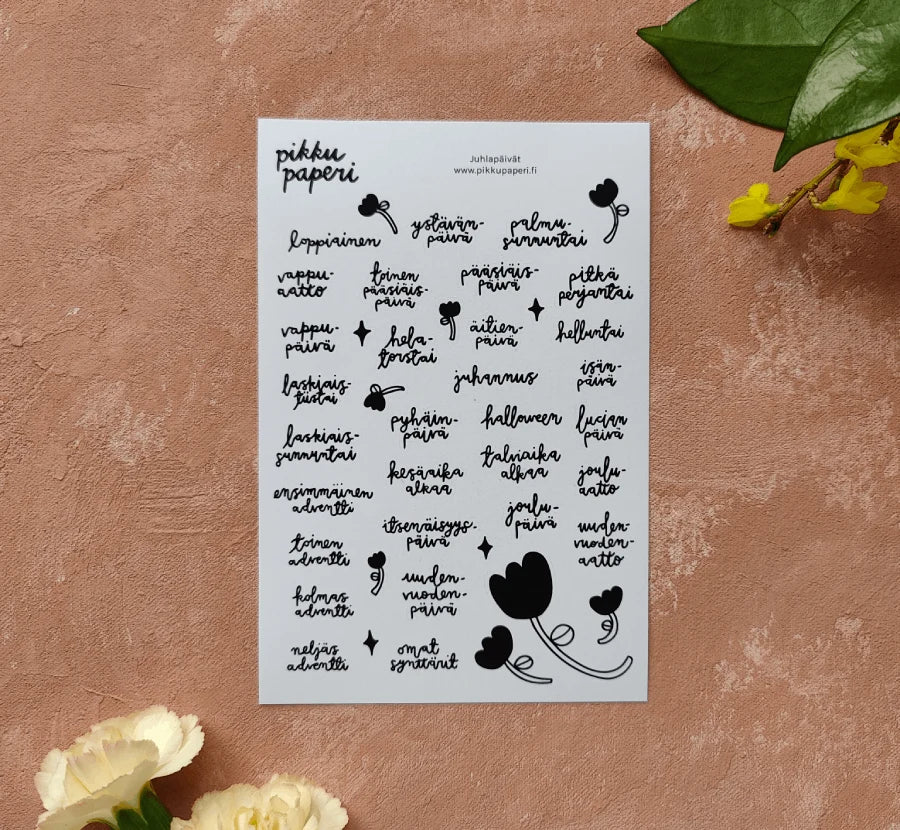 pikku
paperi
Juhlapäivät
www.pikkupaperi.fi
loppiainen
ystävän-
päivä
palmu-
sunnuntai
vappu-
aatto
toinen
pääsiäis-
päivä
pääsiäis-
päivä
pitkä
perjantai
vappu-
päivä
hela-
torstai
äitien-
päivä
helluntai
laskiais-
tiistai
juhannus
isän-
päivä
pyhäin-
päivä
halloween
lucian
päivä
laskiais-
sunnuntai
kesäaika
alkaa
talviaika
alkaa
joulu-
aatto
ensimmäinen
adventti
itsenäisyys-
päivä
joulu-
päivä
uuden-
vuoden-
aatto
toinen
adventti
kolmas
adventti
uuden-
vuoden-
päivä
neljäs
adventti
omat
synttärit